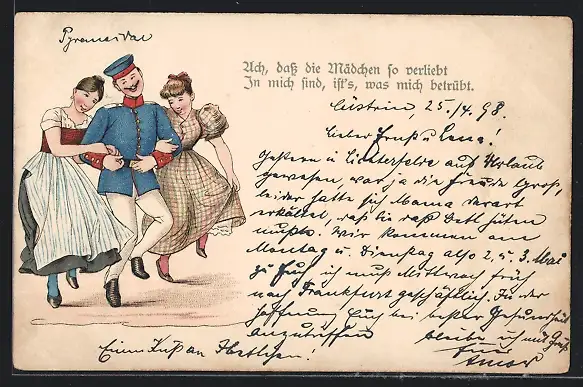 Pyramidal
Ach, daß die Mädchen so verliebt
In mich sind, ist's, was mich betrübt.
Cüstrin, 25./4. 98.
Lieber Ernst u Lena!
Gestern in Lichterfelde auf Urlaub
gewesen, war ja die Freude groß,
leider hatte sich Mama derart
erkältet, daß sie das Bett hüten
mußte. Wir kommen am
Montag u. Dienstag also 2. u. 3. Mai
zu Euch, ich muß Mittwoch früh
nach Frankfurt geschäftlich. In der
Hoffnung Euch bei bester Gesundheit
anzutreffen bleibe ich mit Gruß
Euer
Einen Kuß an